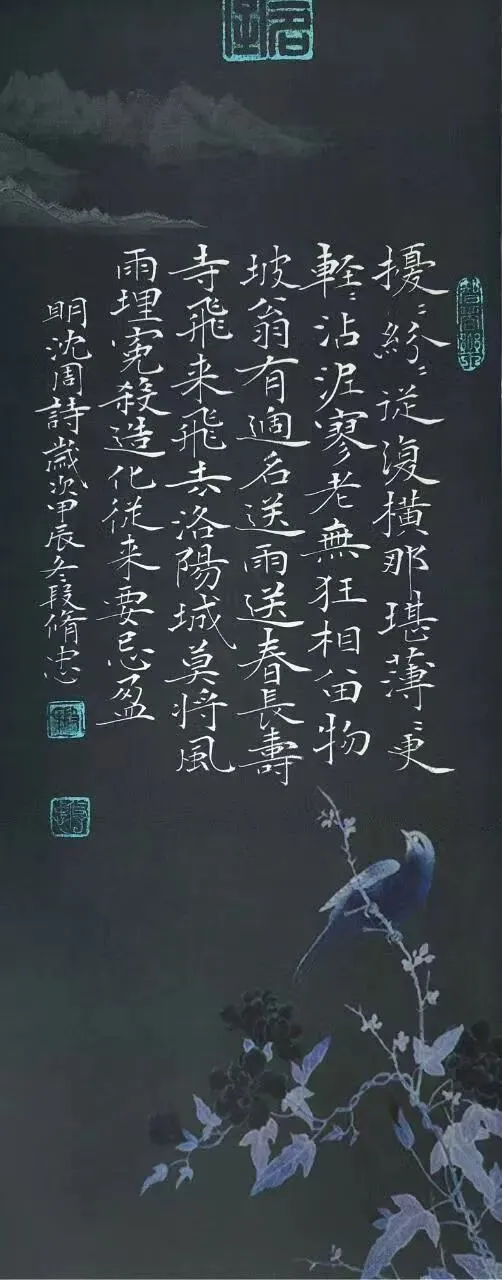 擾〻紛〻従復橫那堪薄〻更
軽〻沾泥寥老無狂相畱物
坡翁有適名送雨送春長壽
寺飛来飛去洛陽城莫將風
雨埋冤殺造化従来要忌盈
明沈周詩歲次甲辰冬段脩忠